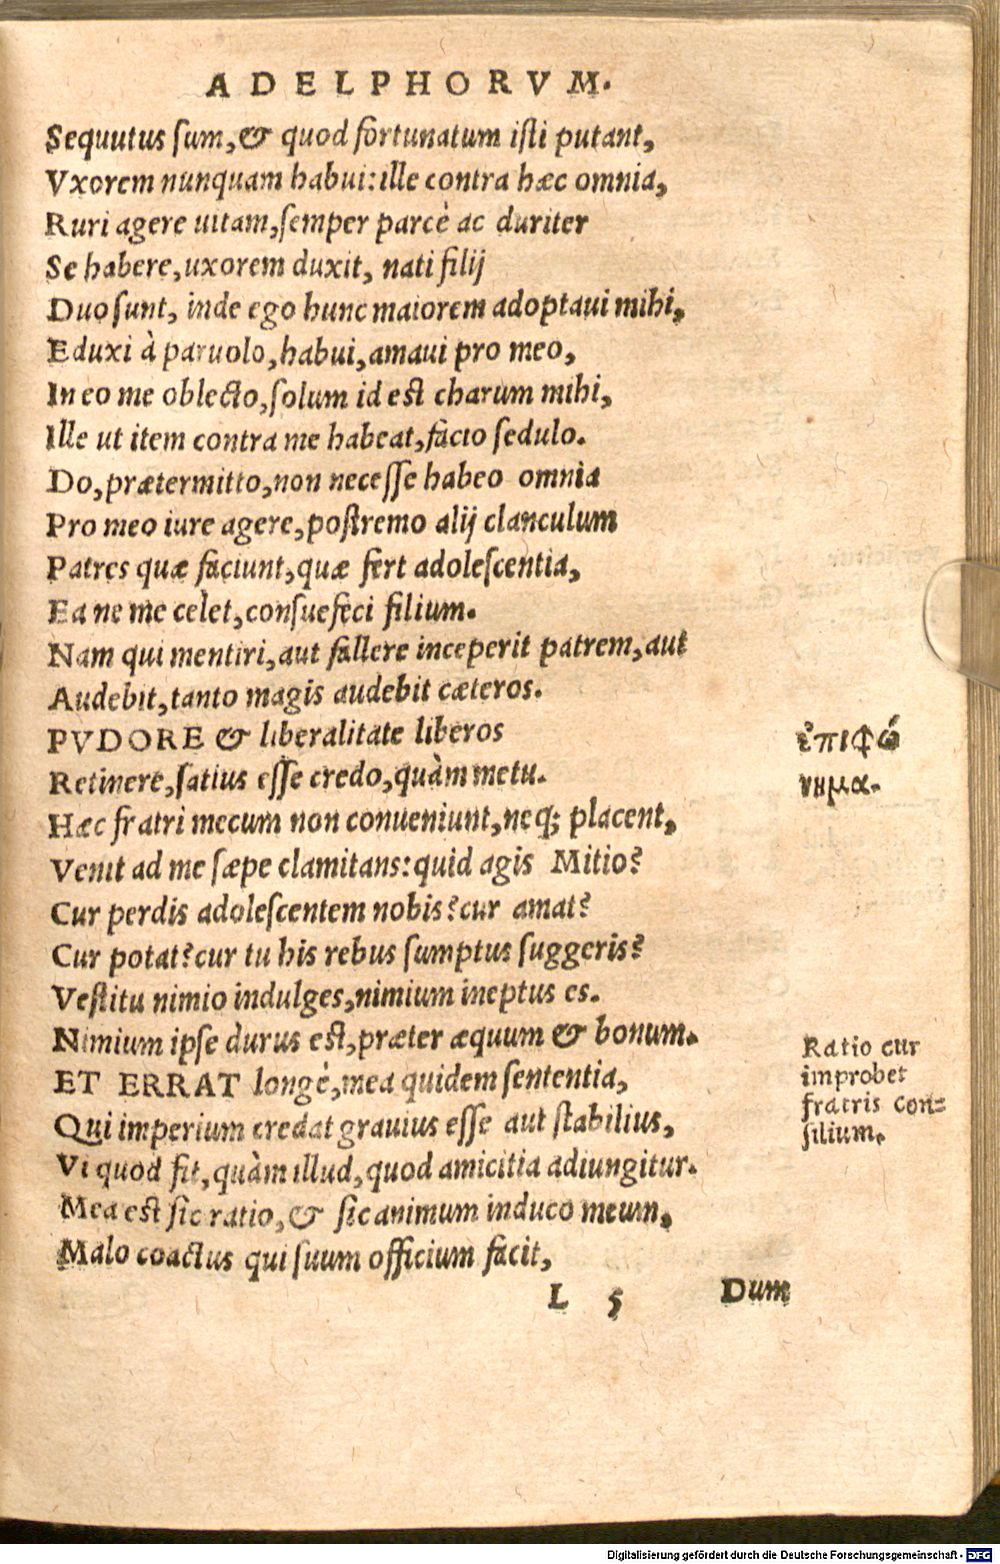 ADELPHORVM.
Sequutus sum, & quod fortunatum isti putant,
Vxorem nunquam habui: ille contra hæc omnia,
Ruri agere uitam, semper parcè ac duriter
Se habere, uxorem duxit, nati filij
Duo sunt, inde ego hunc maiorem adoptaui mihi,
Eduxi à paruolo, habui, amaui pro meo,
In eo me oblecto, solum id est charum mihi,
Ille ut item contra me habeat, facio sedulo.
Do, prætermitto, non necesse habeo omnia
Pro meo iure agere, postremo alij clanculum
Patres quæ faciunt, quæ fert adolescentia,
Ea ne me celet, consuefeci filium.
Nam qui mentiri, aut fallere inceperit patrem, aut
Audebit, tanto magis audebit cæteros.
PVDORE & liberalitate liberos
Retinere, satius esse credo, quàm metu.
ἐπιφώ
νημα.
Hæc fratri mecum non conueniunt, neq; placent,
Venit ad me sæpe clamitans: quid agis Mitio?
Cur perdis adolescentem nobis? cur amat?
Cur potat? cur tu his rebus sumptus suggeris?
Vestitu nimio indulges, nimium ineptus es.
Nimium ipse durus est, præter æquum & bonum.
ET ERRAT longè, mea quidem sententia,
Qui imperium credat grauius esse aut stabilius,
Vi quod fit, quàm illud, quod amicitia adiungitur.
Ratio cur
improbet
fratris con=
silium.
Mea est sic ratio, & sic animum induco meum,
Malo coactus qui suum officium facit,
L 5 Dum
Digitalisierung gefördert durch die Deutsche Forschungsgemeinschaft - DFG